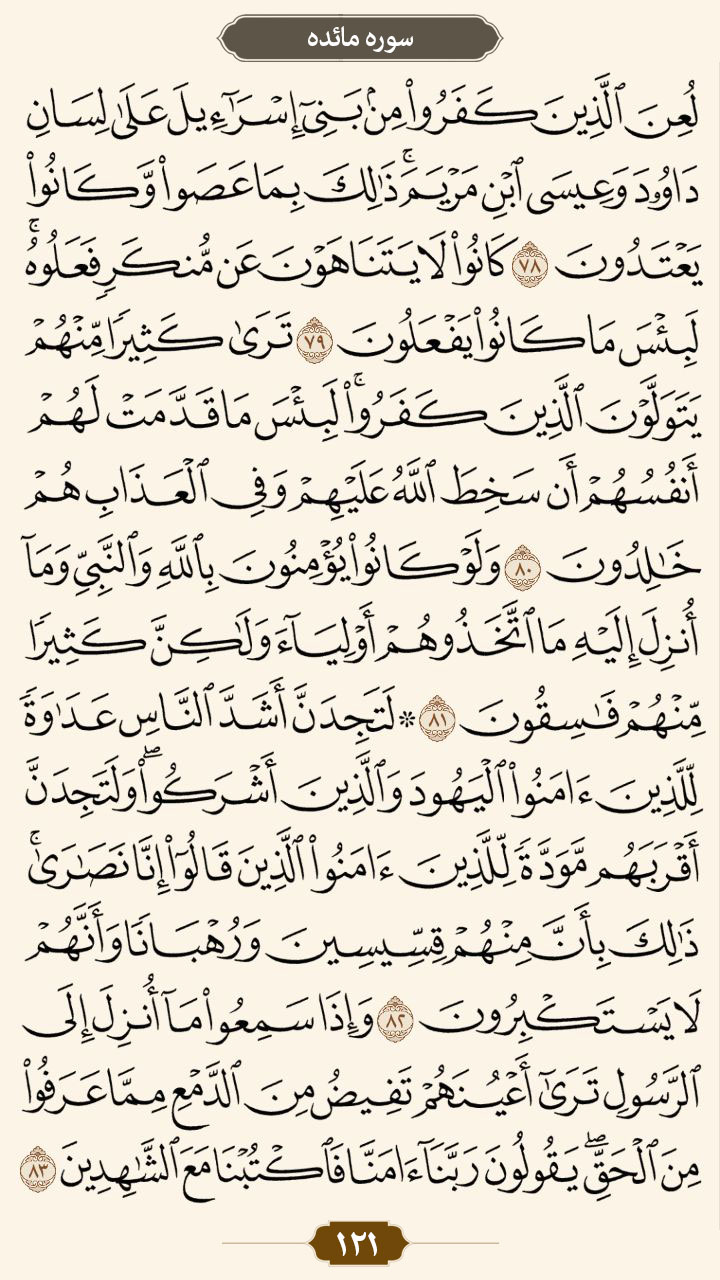 سوره مائده
لُعِنَ ٱلَّذِينَ كَفَرُوا۟ مِنۢ بَنِىٓ إِسْرَٰٓءِيلَ عَلَىٰ لِسَانِ
دَاوُۥدَ وَعِيسَى ٱبْنِ مَرْيَمَ ۚ ذَٰلِكَ بِمَا عَصَوا۟ وَّكَانُوا۟
يَعْتَدُونَ ٧٨ كَانُوا۟ لَا يَتَنَاهَوْنَ عَن مُّنكَرٍ فَعَلُوهُ ۚ
لَبِئْسَ مَا كَانُوا۟ يَفْعَلُونَ ٧٩ تَرَىٰ كَثِيرًا مِّنْهُمْ
يَتَوَلَّوْنَ ٱلَّذِينَ كَفَرُوا۟ ۚ لَبِئْسَ مَا قَدَّمَتْ لَهُمْ
أَنفُسُهُمْ أَن سَخِطَ ٱللَّهُ عَلَيْهِمْ وَفِى ٱلْعَذَابِ هُمْ
خَٰلِدُونَ ٨٠ وَلَوْ كَانُوا۟ يُؤْمِنُونَ بِٱللَّهِ وَٱلنَّبِىِّ وَمَآ
أُنزِلَ إِلَيْهِ مَا ٱتَّخَذُوهُمْ أَوْلِيَآءَ وَلَٰكِنَّ كَثِيرًا
مِّنْهُمْ فَٰسِقُونَ ٨١ ۞ لَتَجِدَنَّ أَشَدَّ ٱلنَّاسِ عَدَٰوَةً
لِّلَّذِينَ ءَامَنُوا۟ ٱلْيَهُودَ وَٱلَّذِينَ أَشْرَكُوا۟ ۖ وَلَتَجِدَنَّ
أَقْرَبَهُم مَّوَدَّةً لِّلَّذِينَ ءَامَنُوا۟ ٱلَّذِينَ قَالُوٓا۟ إِنَّا نَصَٰرَىٰ ۚ
ذَٰلِكَ بِأَنَّ مِنْهُمْ قِسِّيسِينَ وَرُهْبَانًا وَأَنَّهُمْ
لَا يَسْتَكْبِرُونَ ٨٢ وَإِذَا سَمِعُوا۟ مَآ أُنزِلَ إِلَى
ٱلرَّسُولِ تَرَىٰٓ أَعْيُنَهُمْ تَفِيضُ مِنَ ٱلدَّمْعِ مِمَّا عَرَفُوا۟
مِنَ ٱلْحَقِّ ۖ يَقُولُونَ رَبَّنَآ ءَامَنَّا فَٱكْتُبْنَا مَعَ ٱلشَّٰهِدِينَ ٨٣
١٢١